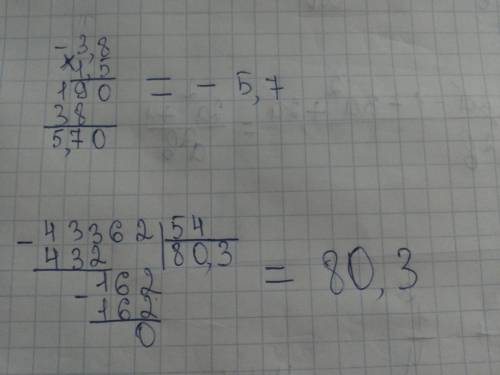 - 3,8
× 1,5
190 = - 5,7
38
5,70
- 43362 | 54
432 | 80,3
- 162 = 80,3
162
0